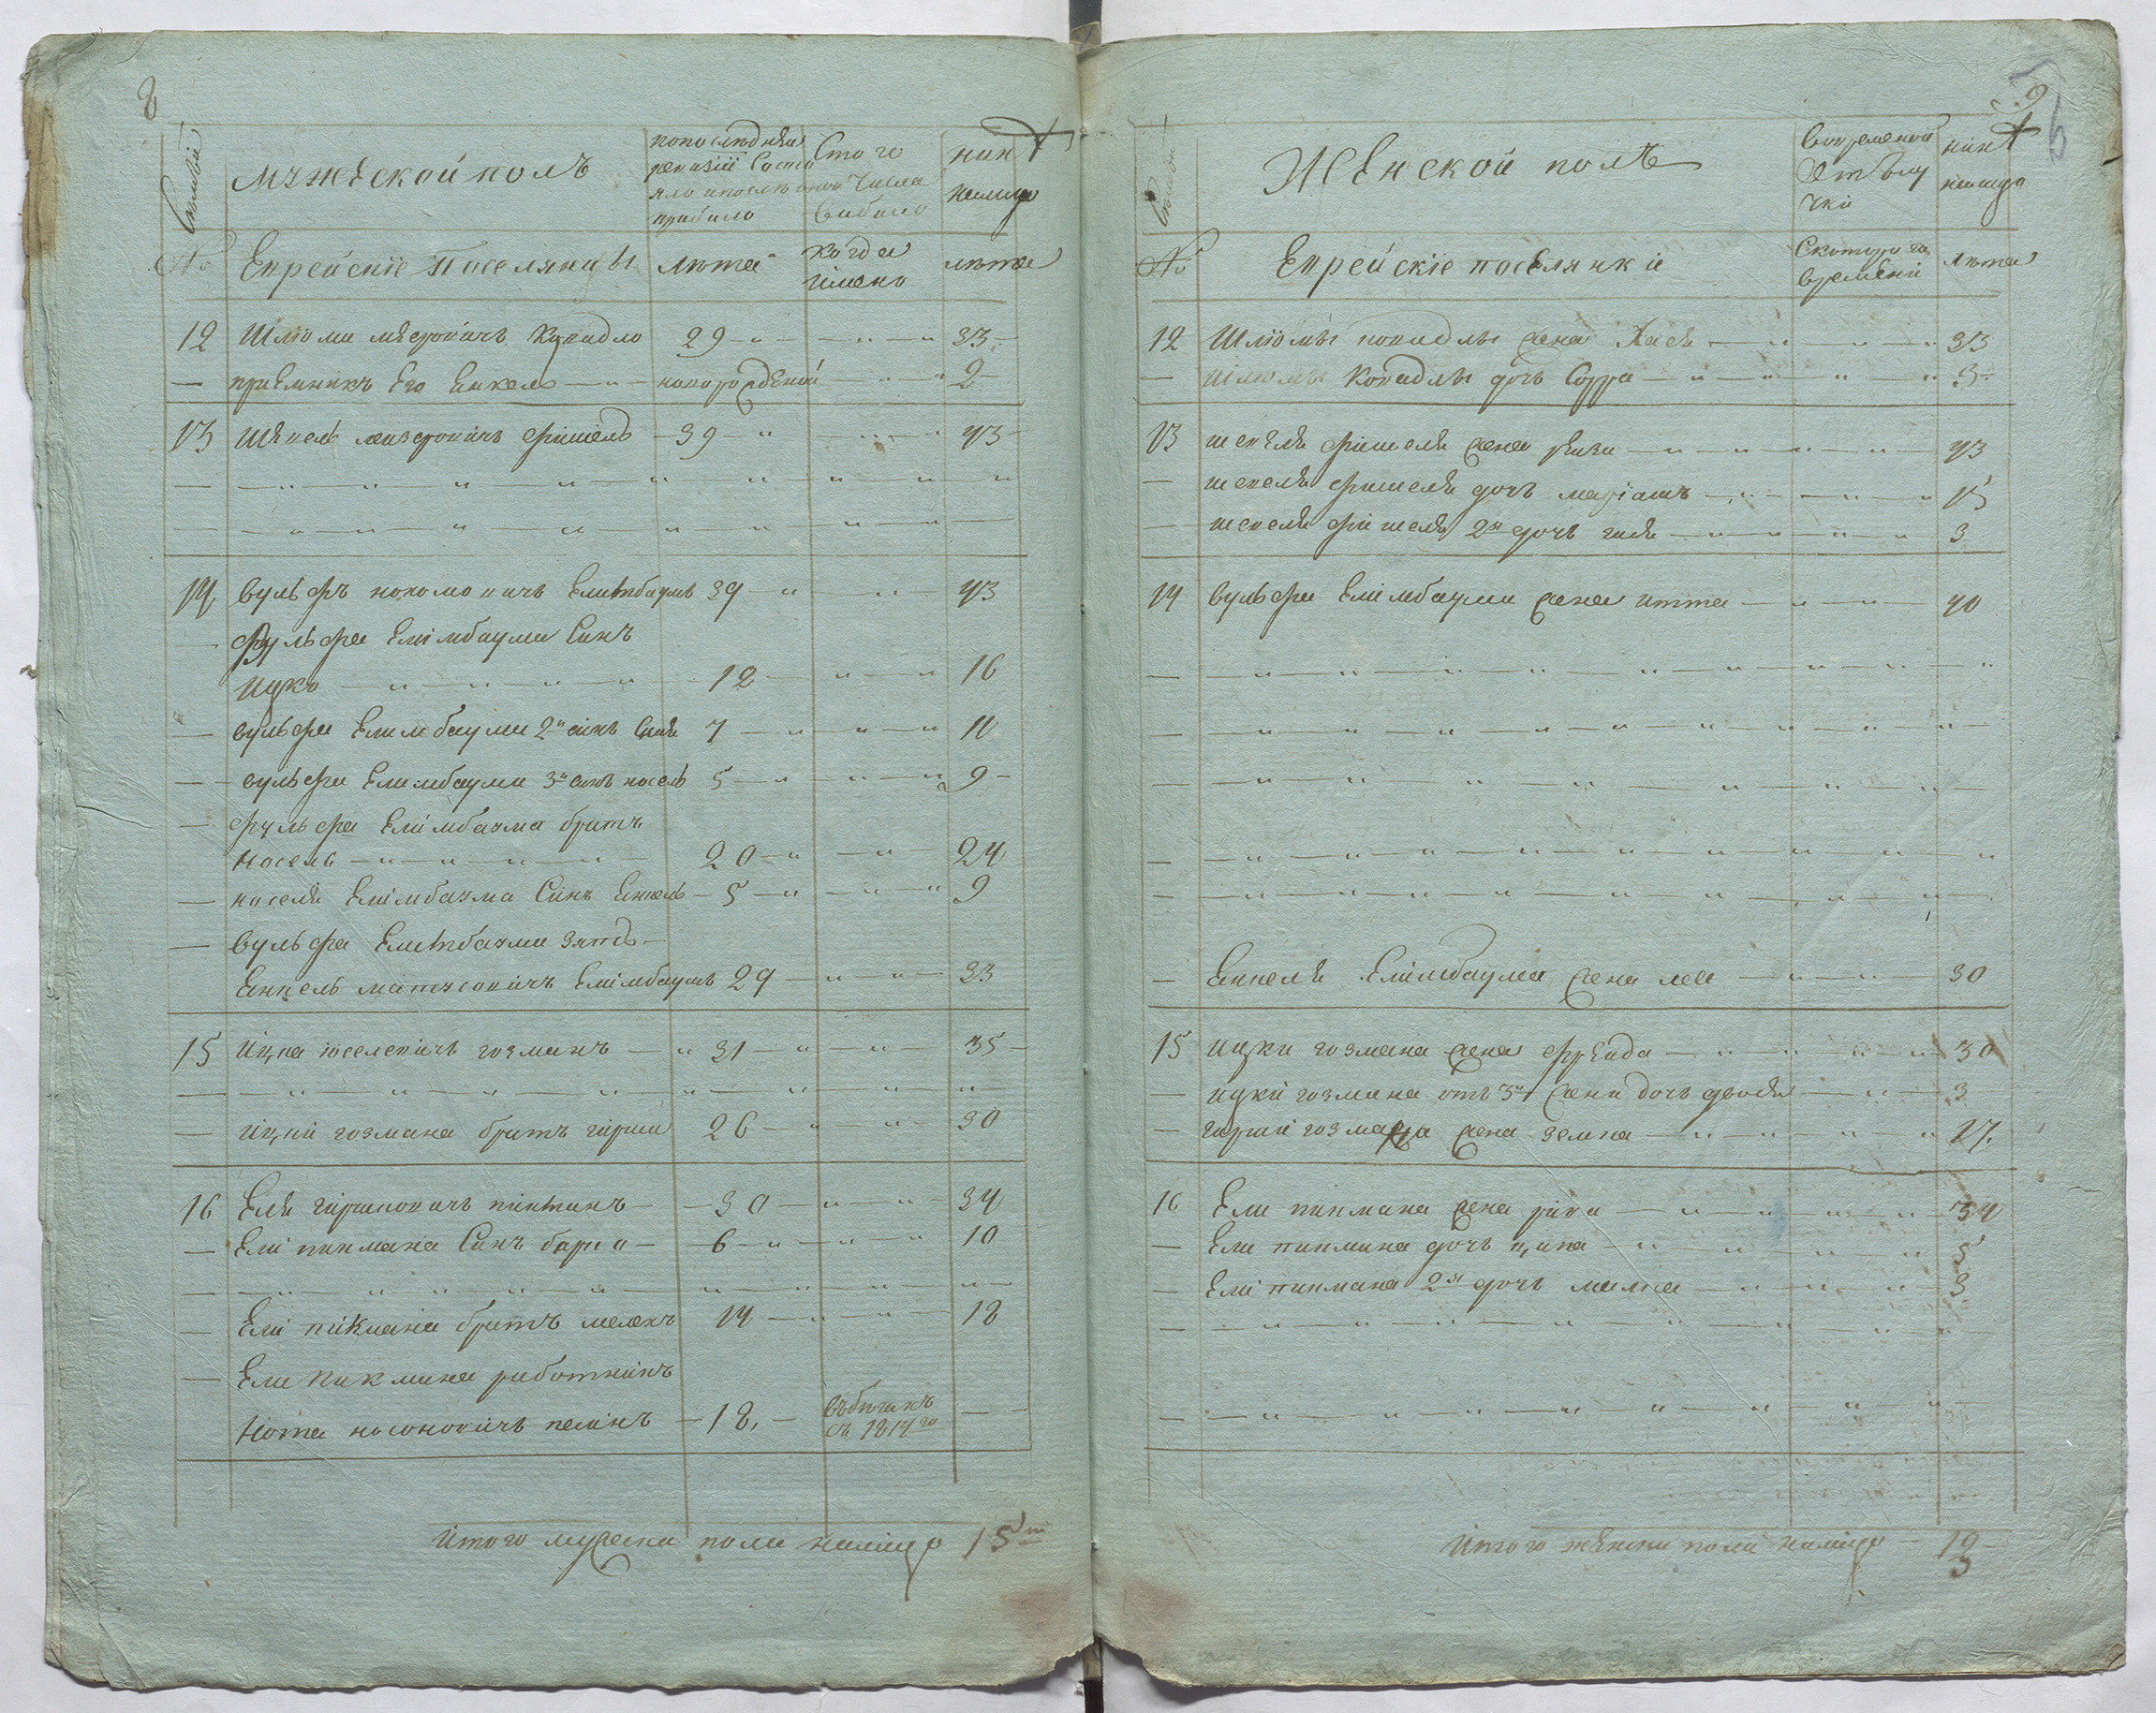 8
Мужеской полъ
по последней
ревизіи состо
яло и после
прибыло
Стого
числа
выбыло
ныне
налицо
№ Еврейскіе поселянцы лета когда имено лета
12 Шлиома меэровичъ Ковадло 29 33
— приемникъ Его Енкель новорожденой 2
13 Шевель лейзеровичъ фишель 39 43
14 Вульфъ нохомовичъ Елимбаумъ 39 43
— Вульфа Елимбаума Синъ
Ицко 12 16
— Вульфа Елимбаума 2й синъ 7 11
— Вульфа Елимбаума 3й синъ носель 5 9
— Вульфа Елимбаума братъ
Носель 20 24
— носеля Елимбаума Синъ Енкель 5 9
— Вульфа Елимбаума зять
Енкель матусовичъ Елимбаумъ 29 33
15 Ицка іоселевичъ гозманъ 31 35
— Ицки гозмана братъ гирша 26 30
16 Еля гиршовичъ пикманъ 30 34
— Елі пикмана Синъ борко 6 10
— Елі пикмана братъ мелехъ 14 18
— Ели пикмана работникъ
Нота носоновичъ 18 въбегахъ
съ 1814го
Итого мужеска пола налицо 15
9
6
Женской полъ
Вовременой
Отълу
чки
ныне
налицо
№ Еврейскіе поселянки Скоторого
времени лета
12 Шлиомы ковадлы жена Хася 33
— шлиомы Ковадлы дочь Сорра 3
13 шевеля фишеля жена 43
— шевеля фишеля дочь маріамъ 15
— шевеля фишеля 2я дочь гися 3
14 Вульфа Елимбаума жена итта 40
— Енкеля Елимбаума жена леа 30
15 Ицки гозмана жена фрейда 30
— ицки гозмана отъ 3й жени дочь двося 3
— гирши гозмана жена земла 27
16 Ели пикмана жена рива 34
— Ели пикмана дочь ципа 5
— Елі пикмана 2я дочь малка 3
Итого женска пола налицо